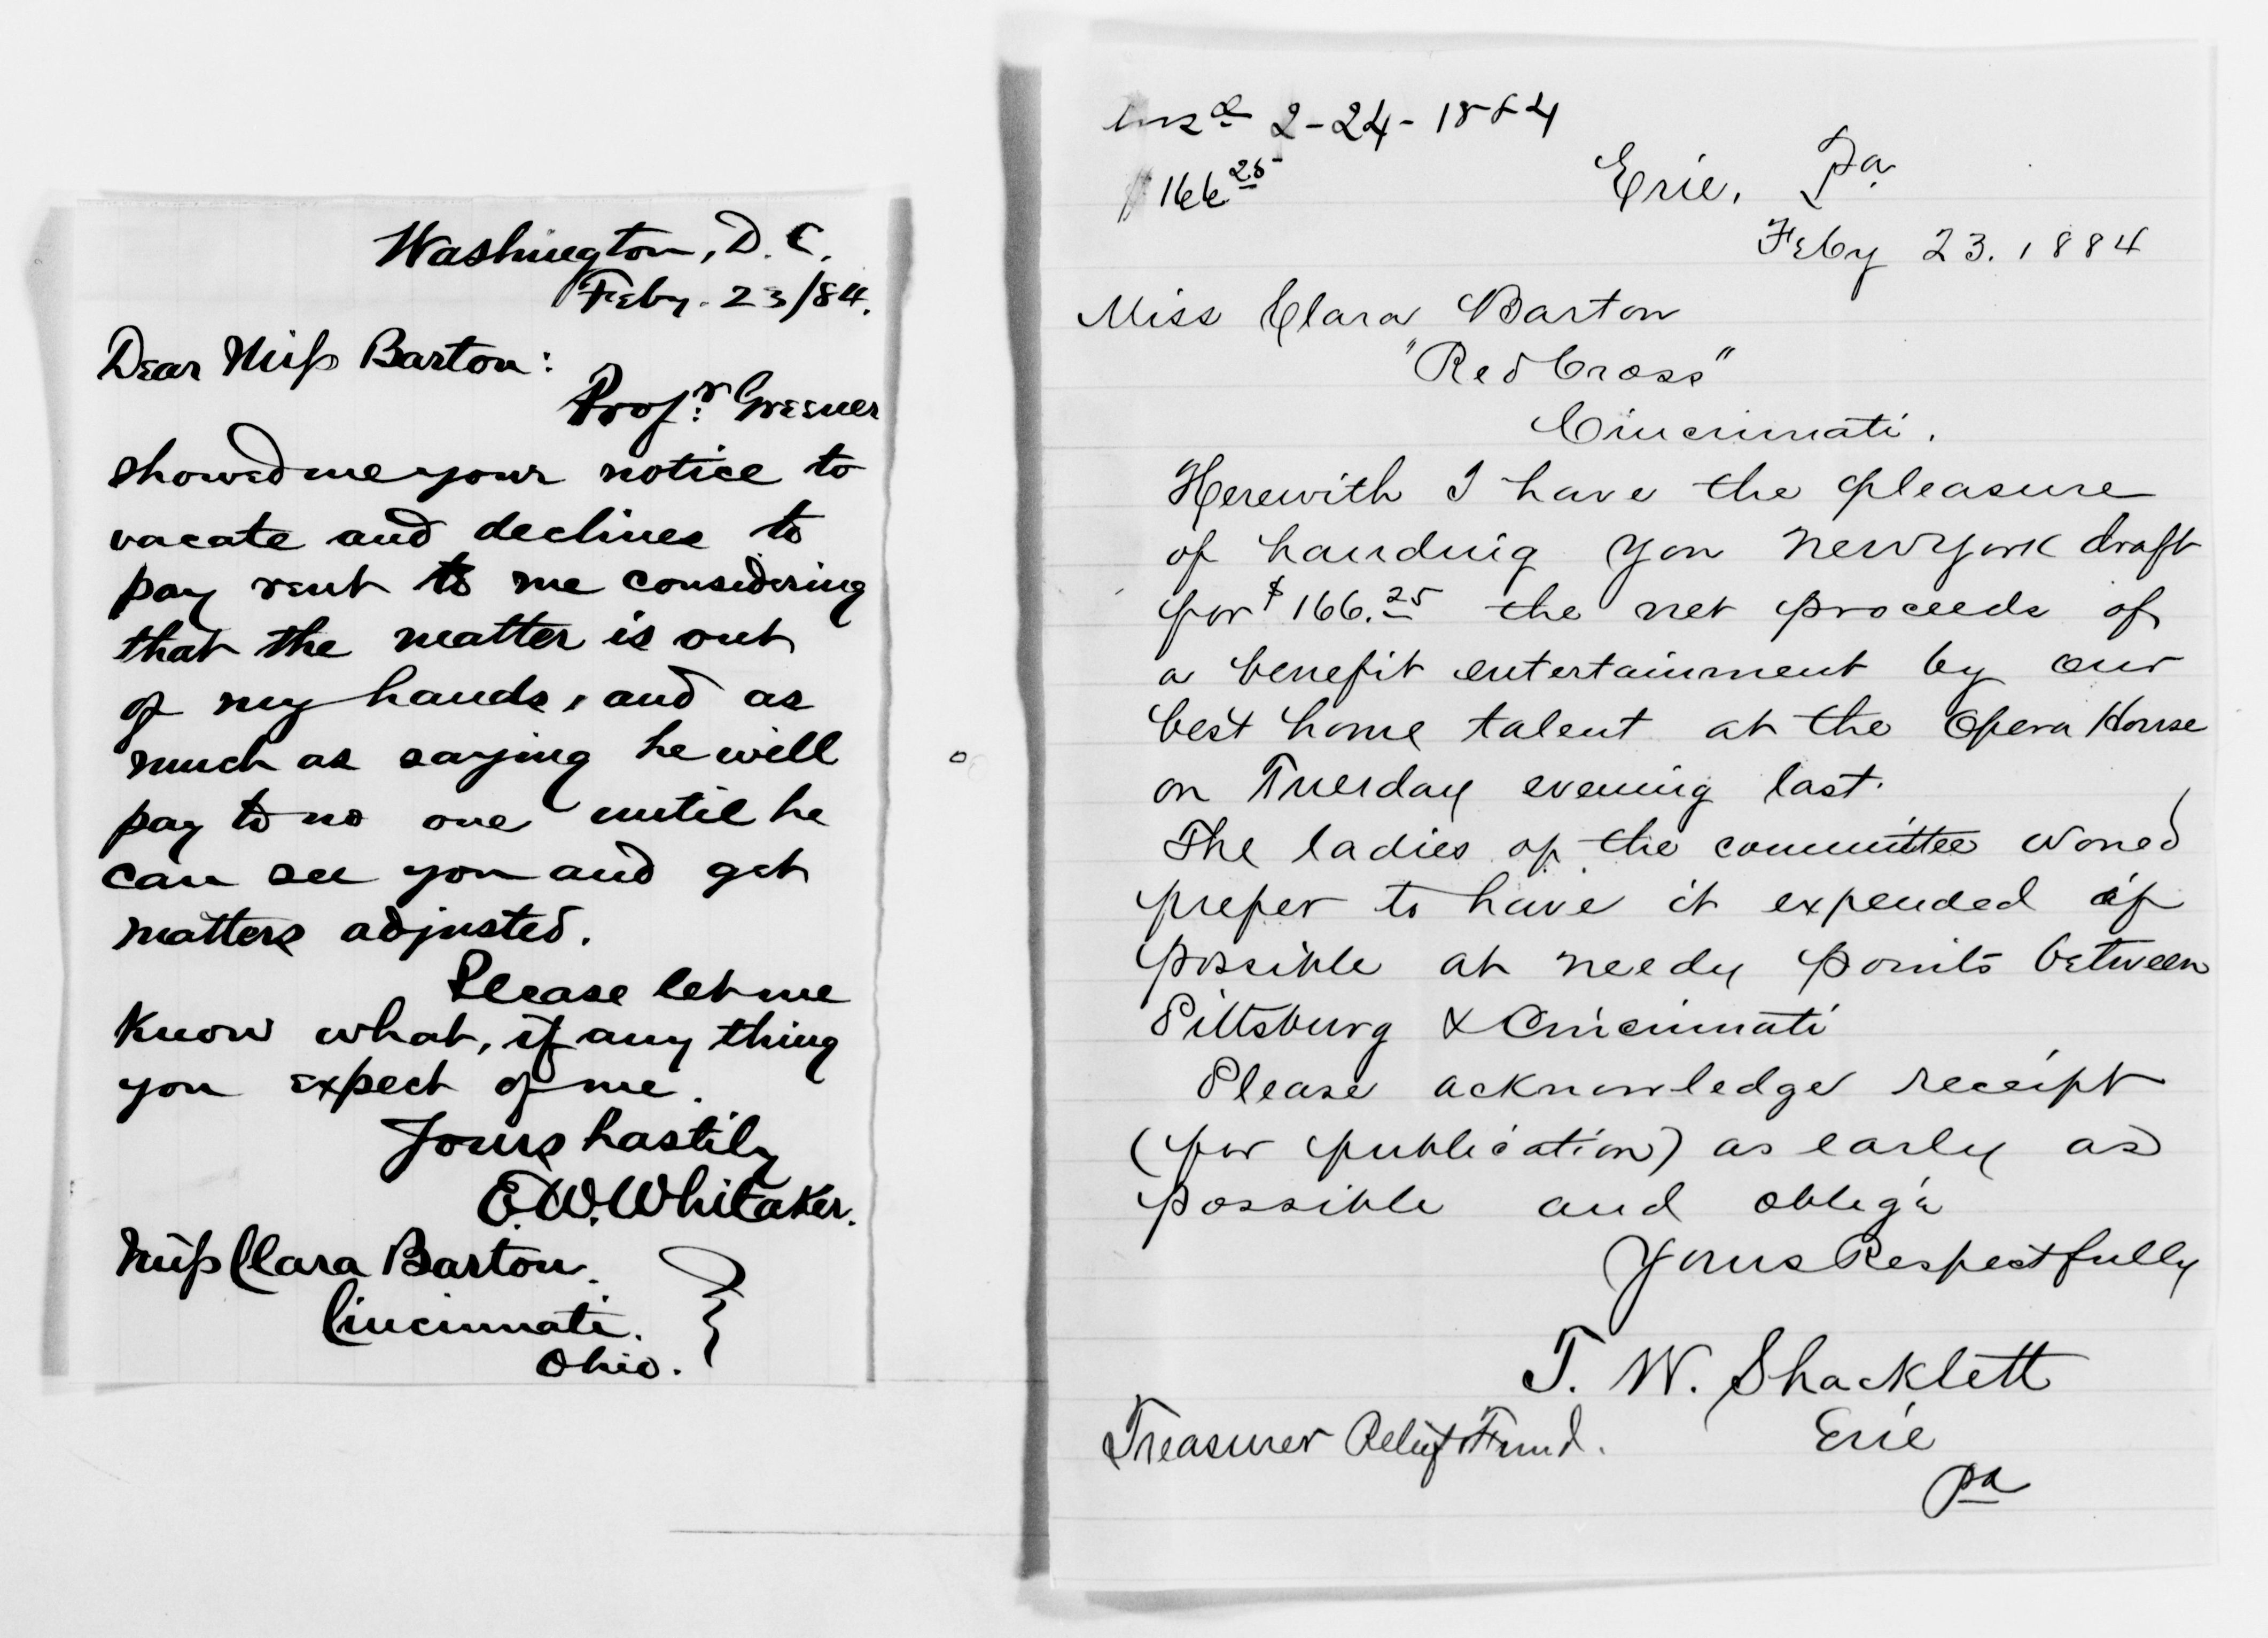 Washington, D.C.
Feby. 23/84.
Dear Miss Barton:
Profr. Greener
showed me your notice to
vacate and declines to
pay rent to me considering
that the matter is out
of my hands, and as
much as saying he will
pay to no one until he
can see you and get
matters adjusted.
Please let me
know what, if any thing
you expect of me.
Yours hastily
E.W. Whitaker.
Miss Clara Barton.
Cincinnati.
Ohio.
Ansd 2-24-1884
$166 25
Erie, Pa
Feby 23. 1884
Miss Clara Barton
"Red Cross"
Cincinnati.
Herewith I have the pleasure
of handing you New York draft
for $166.25 the net proceeds of
a benefit entertainment by our
best home talent at the Opera House
on Tuesday evening last.
The ladies of the committee would
prefer to have it expended if
possible at needy points between
Pittsburg & Cincinnati
Please acknowledge receipt
(for publication) as early as
possible and oblige
Yours Respectfully
T. W. Shacklett
Treasurer Relief Fund. Erie
Pa